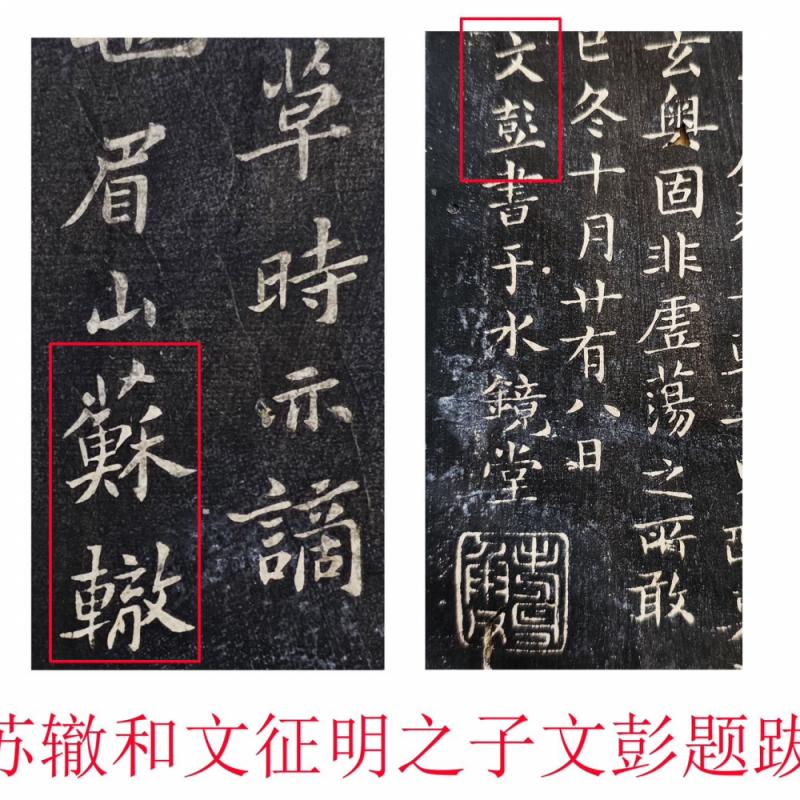 草時亦謫
也眉山蘇轍
玄奧固非虛蕩之所敢
巳冬十月廿有八日
文彭書于水鏡堂
苏辙和文征明之子文彭题跋